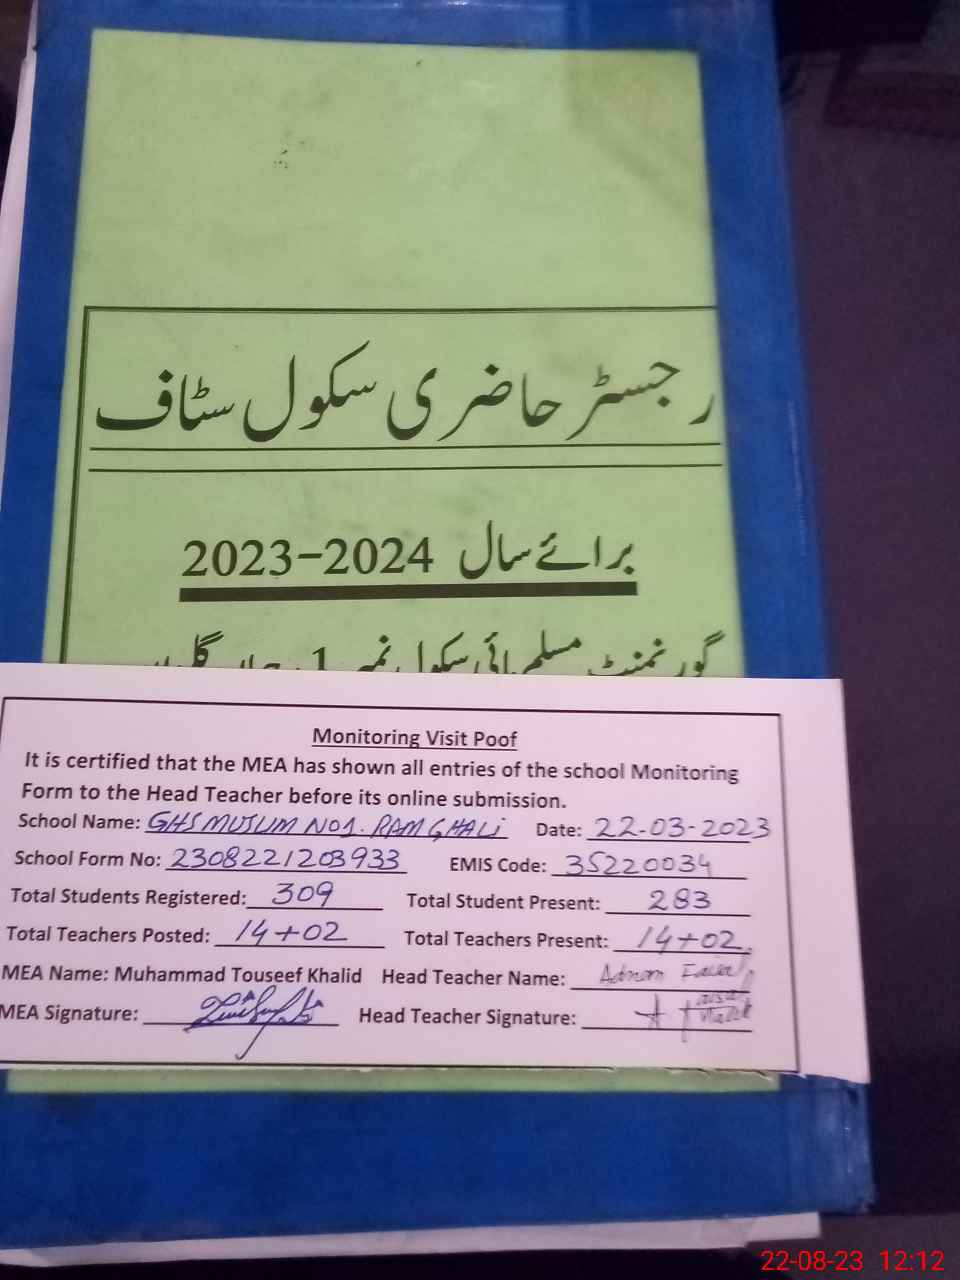 رجسٹر حاضری سکول سٹاف
برائے سال 2023-2024
گورنمنٹ مسلم ہائی سکول نمبر 1
Monitoring Visit Poof
It is certified that the MEA has shown all entries of the school Monitoring
Form to the Head Teacher before its online submission.
School Name: GHS MUSLIM NO1. RAM GHALI Date: 22-03-2023
School Form No: 2308221203933 EMIS Code: 35220034
Total Students Registered: 309 Total Student Present: 283
Total Teachers Posted: 14+02 Total Teachers Present: 14+02
MEA Name: Muhammad Touseef Khalid Head Teacher Name: Adnan
MEA Signature: Head Teacher Signature:
22-08-23 12:12